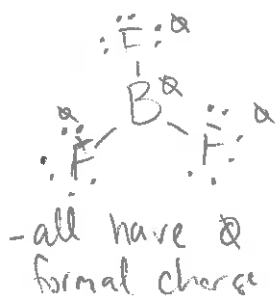 F 0
B 0
0 F F 0
-all have 0
formal charge